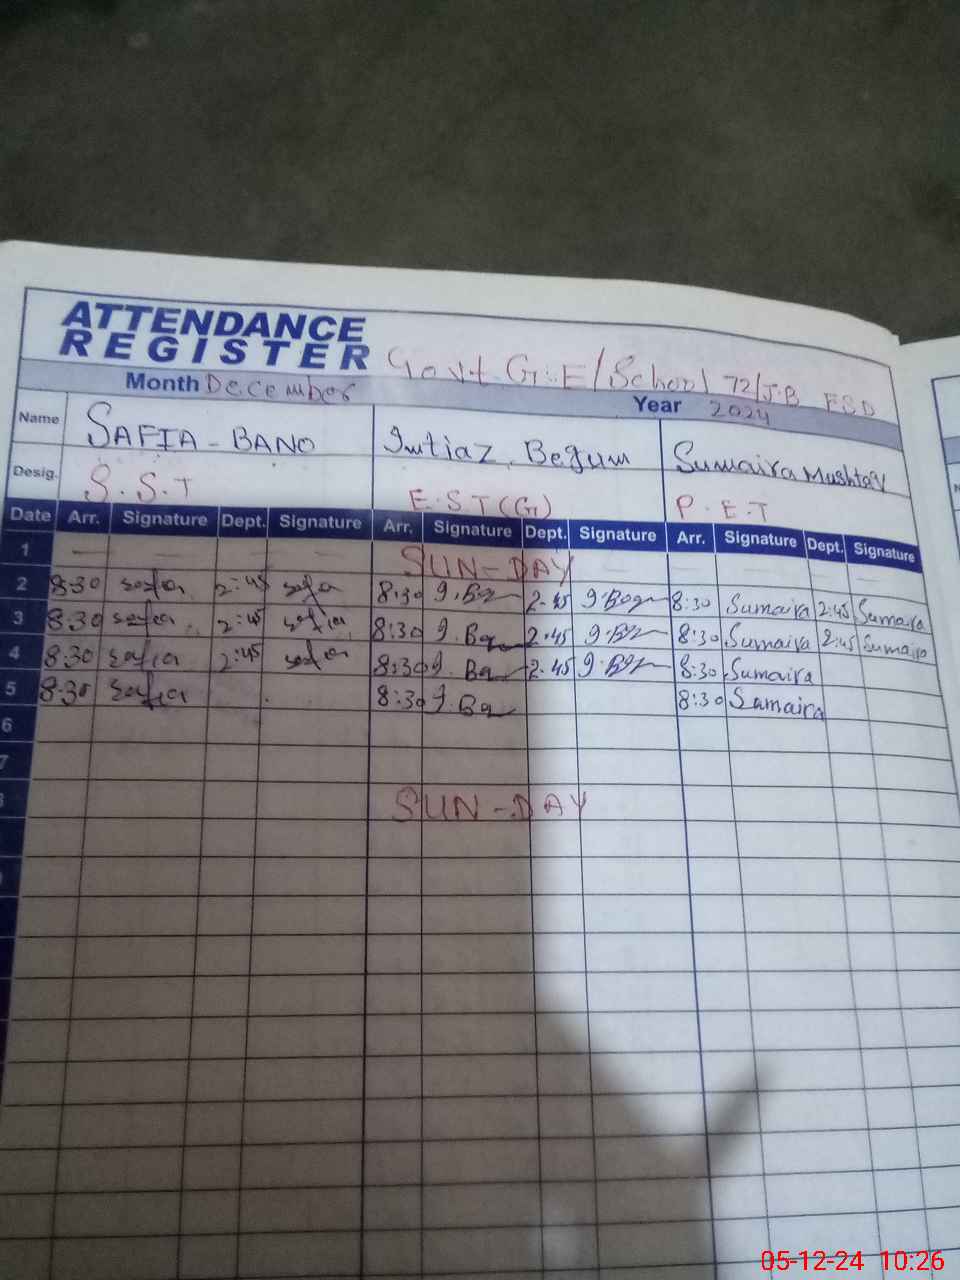 ATTENDANCE
REGISTER
Govt. G.E/School 72/J.B FSD
Month December
Year 2024
Name SAFIA-BANO Imtiaz Begum Sumaira Mushtaq
Desig. S.S.T E.S.T(G) P.E.T
Date Arr. Signature Dept. Signature Arr. Signature Dept. Signature Arr. Signature Dept. Signature
1 — — — — SUN-DAY — — — —
2 8:30 safia 2:45 safia 8:30 I.Beg 2.45 I.Beg 8:30 Sumaira 2:45 Sumaira
3 8:30 safia 2:45 safia 8:30 I.Beg 2.45 I.Beg 8:30 Sumaira 2:45 Sumaira
4 8:30 safia 2:45 safia 8:30 I.Beg 2.45 I.Beg 8:30 Sumaira
5 8:30 safia 8:30 I.Beg 8:30 Sumaira
6
7
SUN-DAY
05-12-24 10:26